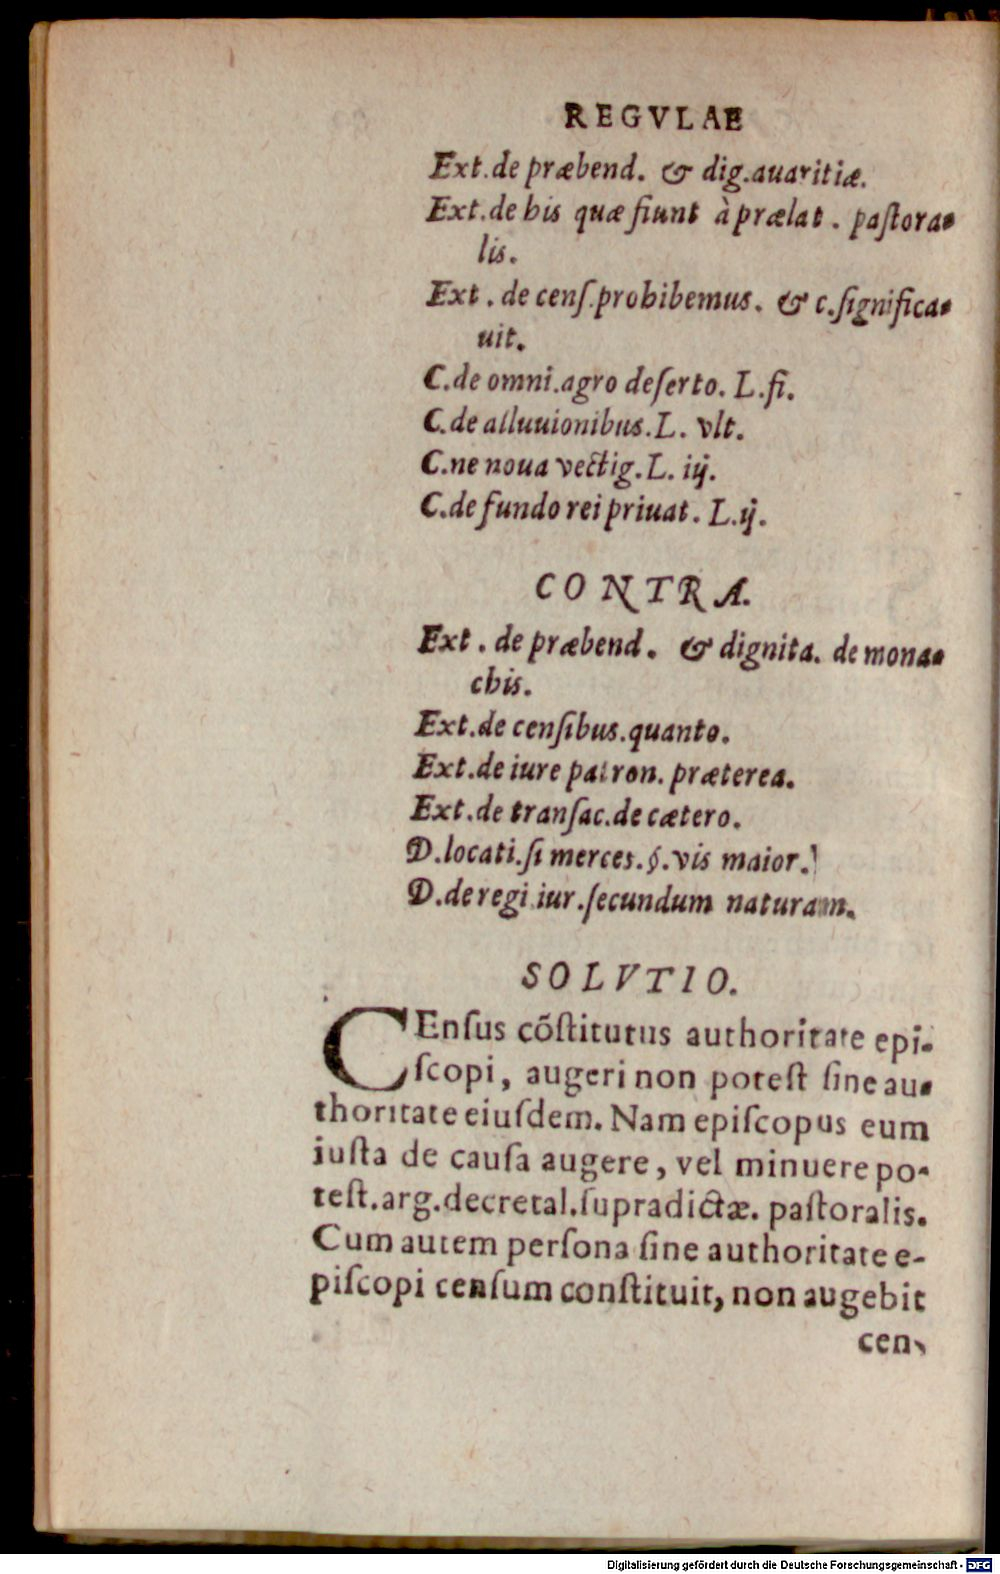 REGVLAE
Ext.de præbend. & dig.auaritiæ.
Ext.de his quæ fiunt à prælat. paſtora-
lis.
Ext. de cenſ.prohibemus. & c.ſignifica-
uit.
C.de omni.agro deſerto. L.fi.
C.de alluuionibus.L. vlt.
C.ne noua vectig.L. iij.
C.de fundo rei priuat. L.ij.
CONTRA.
Ext. de præbend. & dignita. de mona-
chis.
Ext.de cenſibus.quanto.
Ext.de iure patron. præterea.
Ext.de tranſac.de cætero.
D.locati.ſi merces.§.vis maior.
D.de regi iur.ſecundum naturam.
SOLVTIO.
CEnſus cõſtitutus authoritate epi-
ſcopi, augeri non poteſt ſine au-
thoritate eiuſdem. Nam epiſcopus eum
iuſta de cauſa augere, vel minuere po-
teſt.arg.decretal.ſupradictæ. paſtoralis.
Cum autem perſona ſine authoritate e-
piſcopi cenſum conſtituit, non augebit
cen-
Digitalisierung gefördert durch die Deutsche Forschungsgemeinschaft - DFG